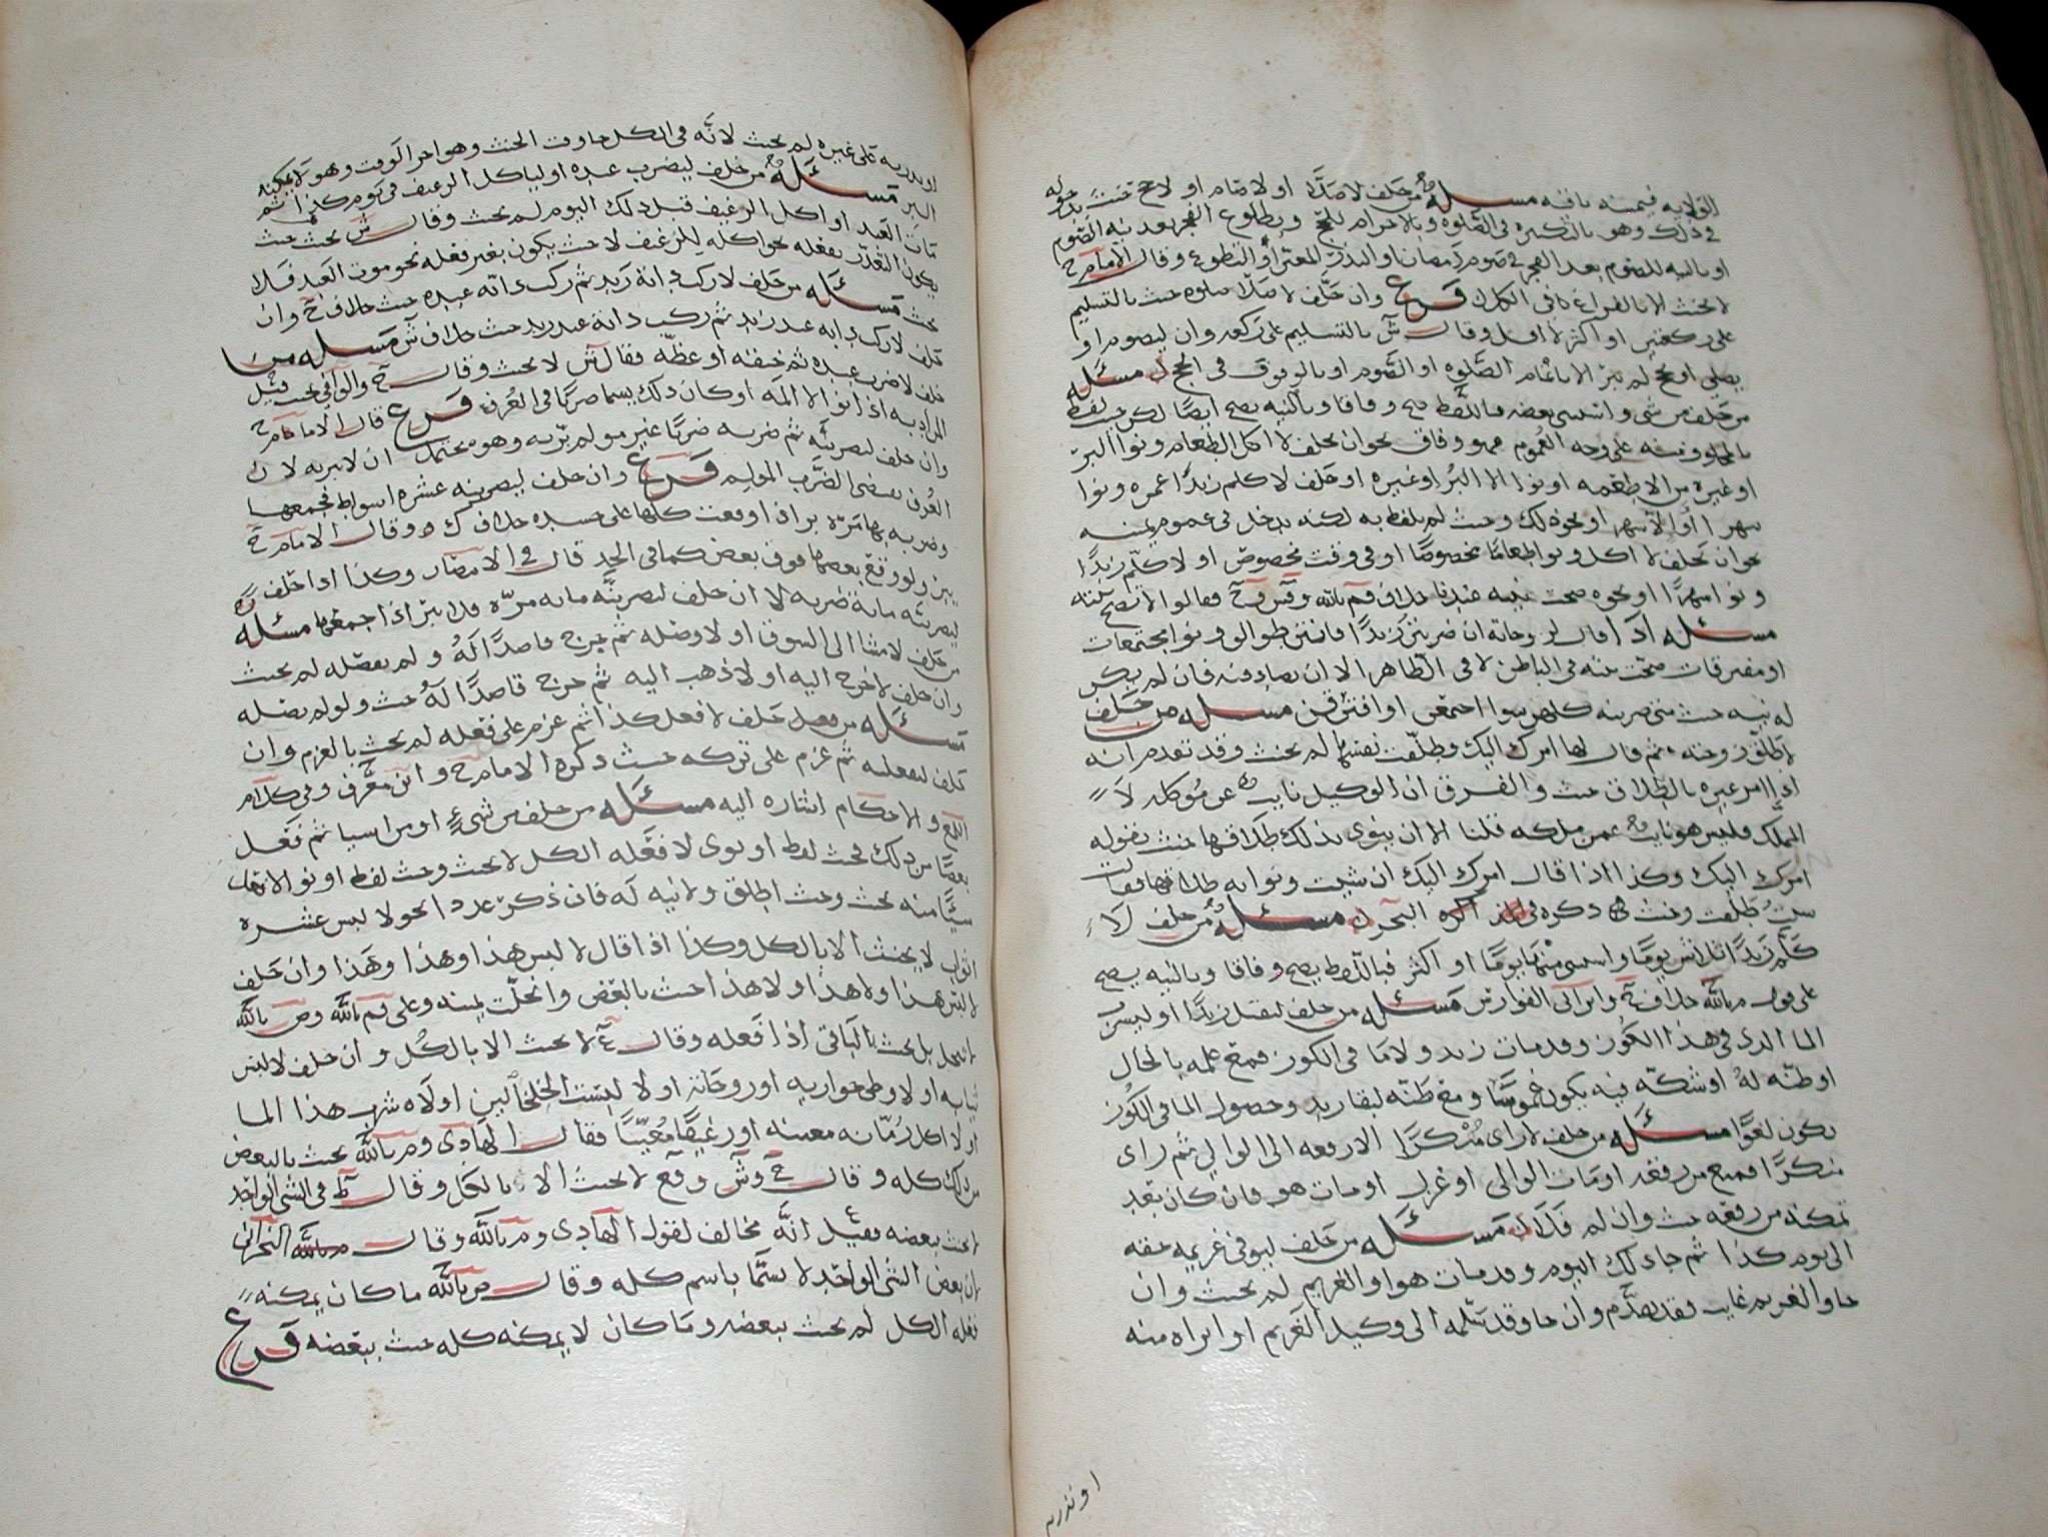 الولايه فيمينه باقيه مسئله من حلف لا صلا او لا صام او لا حج حنث بدخوله
في ذلك وهو بالتكبيره في الصلوه وبالاحرام للحج وبطلوع الفجر بعد نيه الصوم
او بالنيه للصوم بعد الفجر في صوم رمضان او النذر المعين او التطوع وقال الامام ح
لا يحنث الا بالفراغ كافي الكل فرع وان حلف لا صلا صلوه حنث بالتسليم
على ركعتين او اكثر لا اقل وقال ش بالتسليم على ركعه وان ليصوم او
يصلي او يحج لم يبر الا باتمام الصلوه او الصوم او بالوقوف في الحج مسئله
من حلف من شي واستثنى بعضه فباللفظ يصح وفاقا وبالنيه يصح ايضا لكن حيث لفظ
بالمحلوف منه على وجه العموم فهو وفاق نحو ان يحلف لا اكل الطعام ونوا البر
او غيره من الاطعمه او نوا الا البر او غيره او حلف لا كلم زيدا عمره ونوا
شهرا او الا شهرا او نحو ذلك وحيث لم يلفظ به لكنه يدخل في عموم يمينه
نحو ان يحلف لا اكل ونوا طعاما مخصوصا او في وقت مخصوص او لا كلم زيدا
ونوا شهرا او نحوه صحت نيته عندنا خلاف م بالله وش وح فقالوا لا تصح نيته
مسئله اذا قال لزوجاته ان ضربتن زيدا فانتن طوالق ونوا مجتمعات
او مفترقات صحت نيته في الباطن لا في الظاهر الا ان يصادقنه فان لم يكن
له نيه حنث متى ضربنه كلهن سوا اجتمعن او افترقن مسئله من حلف
لا طلق زوجته ثم قال لها امرك اليك وطلقت نفسها لم يحنث وقد تقدم انه
اذا امر غيره بالطلاق حنث والفرق ان الوكيل نايب عن موكله لا
المملك فليس هو نايب عمن ملكه قلنا الا ان ينوي بذلك طلاقها حنث بقوله
امرك اليك وكذا اذا قال امرك اليك ان شيت ونوا به طلاقها فقالت
شيت طلقت وحنث ذكره في البحر مسئله من حلف لا
كلم زيدا ثلاثين يوما واستثنى منها يوما او اكثر فباللفظ يصح وفاقا وبالنيه يصح
على قول م بالله خلاف ح وابن ابي الفوارس مسئله من حلف ليقتل زيدا او ليشربن
الما الذي في هذا الكوز وقد مات زيد ولا ما في الكوز فمع علمه بالحال
او ظنه له او شكه فيه يكون غموسا ومع ظنه لبقا زيد وحصول الما في الكوز
يكون لغوا مسئله من حلف لا راى منكرا الا رفعه الى الوالي ثم راى
منكرا فمنع من رفعه او مات الوالي او عزل او مات هو فان كان بعد
تمكنه من رفعه حنث وان لم فلا مسئله من حلف ليوفي غريمه حقه
الى يوم كذا ثم جا ذلك اليوم وقد مات هو او الغريم لم يحنث وان
جا والغريم غايب فقد تقدم وان جا وقد سلمه الى وكيل الغريم او ابراه منه
او نذر به
او نذر به على غيره لم يحنث لانه في الكل جا وقت الحنث وهو اخر الوقت وهو لا يمكنه
البر مسئله من حلف ليضرب عبده او لياكل الرغيف في يوم كذا ثم
مات العبد او اكل الرغيف قبل ذلك اليوم لم يحنث وقال ش يحنث حيث
يكون التعذر بفعله نحو اكله للرغيف لا حيث يكون بغير فعله نحو موت العبد فلا
يحنث مسئله من حلف لا ركب دابة زيد ثم ركب دابة عبده حنث خلاف ح وان
حلف لا ركب دابه عبد زيد ثم ركب دابة عبد زيد حنث خلاف ش مسئله من
حلف لا ضرب عبده ثم خنقه او عظه فقال ش لا يحنث وقال ح والوافي يحنث قيل
المراد به اذا نوا الا المه او كان ذلك يسما ضربا في العرف فرع قال الامام ح
وان حلف ليضربنه ثم ضربه ضربا غير مولم بر به وهو محتمل ان لا يبر به لان
العرف يقضي الضرب المولم فرع وان حلف ليضربنه عشره اسواط فجمعها
وضربه بها مره بر اذا وقعت كلها على جسده خلاف ك وقال الامام ح
يبر ولو وقع بعضها فوق بعض كما في الحد قال في الانتصار وكذا اذا حلف
ليضربنه ماية ضربه لا ان حلف ليضربنه مايه مره فلا يبر اذا جمعها مسئله
من حلف لا مشا الى السوق او لا وصله ثم خرج قاصدا له ولم يصله لم يحنث
وان حلف لا خرج اليه او لا ذهب اليه ثم خرج قاصدا له حنث ولو لم يصله
مسئله من حلف لا فعل كذا ثم عزم على فعله لم يحنث بالعزم وان
حلف ليفعلنه ثم عزم على تركه حنث ذكره الامام ح وابن معرف وفي كلام
اللمع والاحكام اشاره اليه مسئله من حلف من شيء او من اشيا ثم فعل
بعضا من ذلك فحيث لفظ او نوى لا فعله الكل لا يحنث وحيث لفظ او نوا لا فعل
شيا منه يحنث وحيث اطلق ولا نيه له فان ذكر عددا نحو لا لبس عشره
اثواب لا يحنث الا بالكل وكذا اذا قال لا لبس هذا وهذا وهذا وان حلف
لا لبس هذا ولا هذا ولا هذا حنث بالبعض وانحلت يمينه وعلى قول م بالله وص بالله
لا تنحل بل يحنث بالباقي اذا فعله وقال ع لا يحنث الا بالكل وان حلف لا لبس
ثيابه او لا وطي جواريه او زوجاته او لا لبست الخلخالين او لا شرب هذا الما
او لا اكل رمانه معينه او رغيفا معينا فقال الهادي وم بالله يحنث بالبعض
من ذلك كله وقال ح وش وقع لا يحنث الا بالكل وقال ط في الشي الواحد
لا يحنث ببعضه فقيل انه مخالف لقول الهادي وم بالله وقال النجراني
لان بعض الشي الواحد لا يسما باسم كله وقال ص بالله ما كان يمكنه
فعله الكل لم يحنث ببعضه وما كان لا يمكنه كله حنث ببعضه فرع